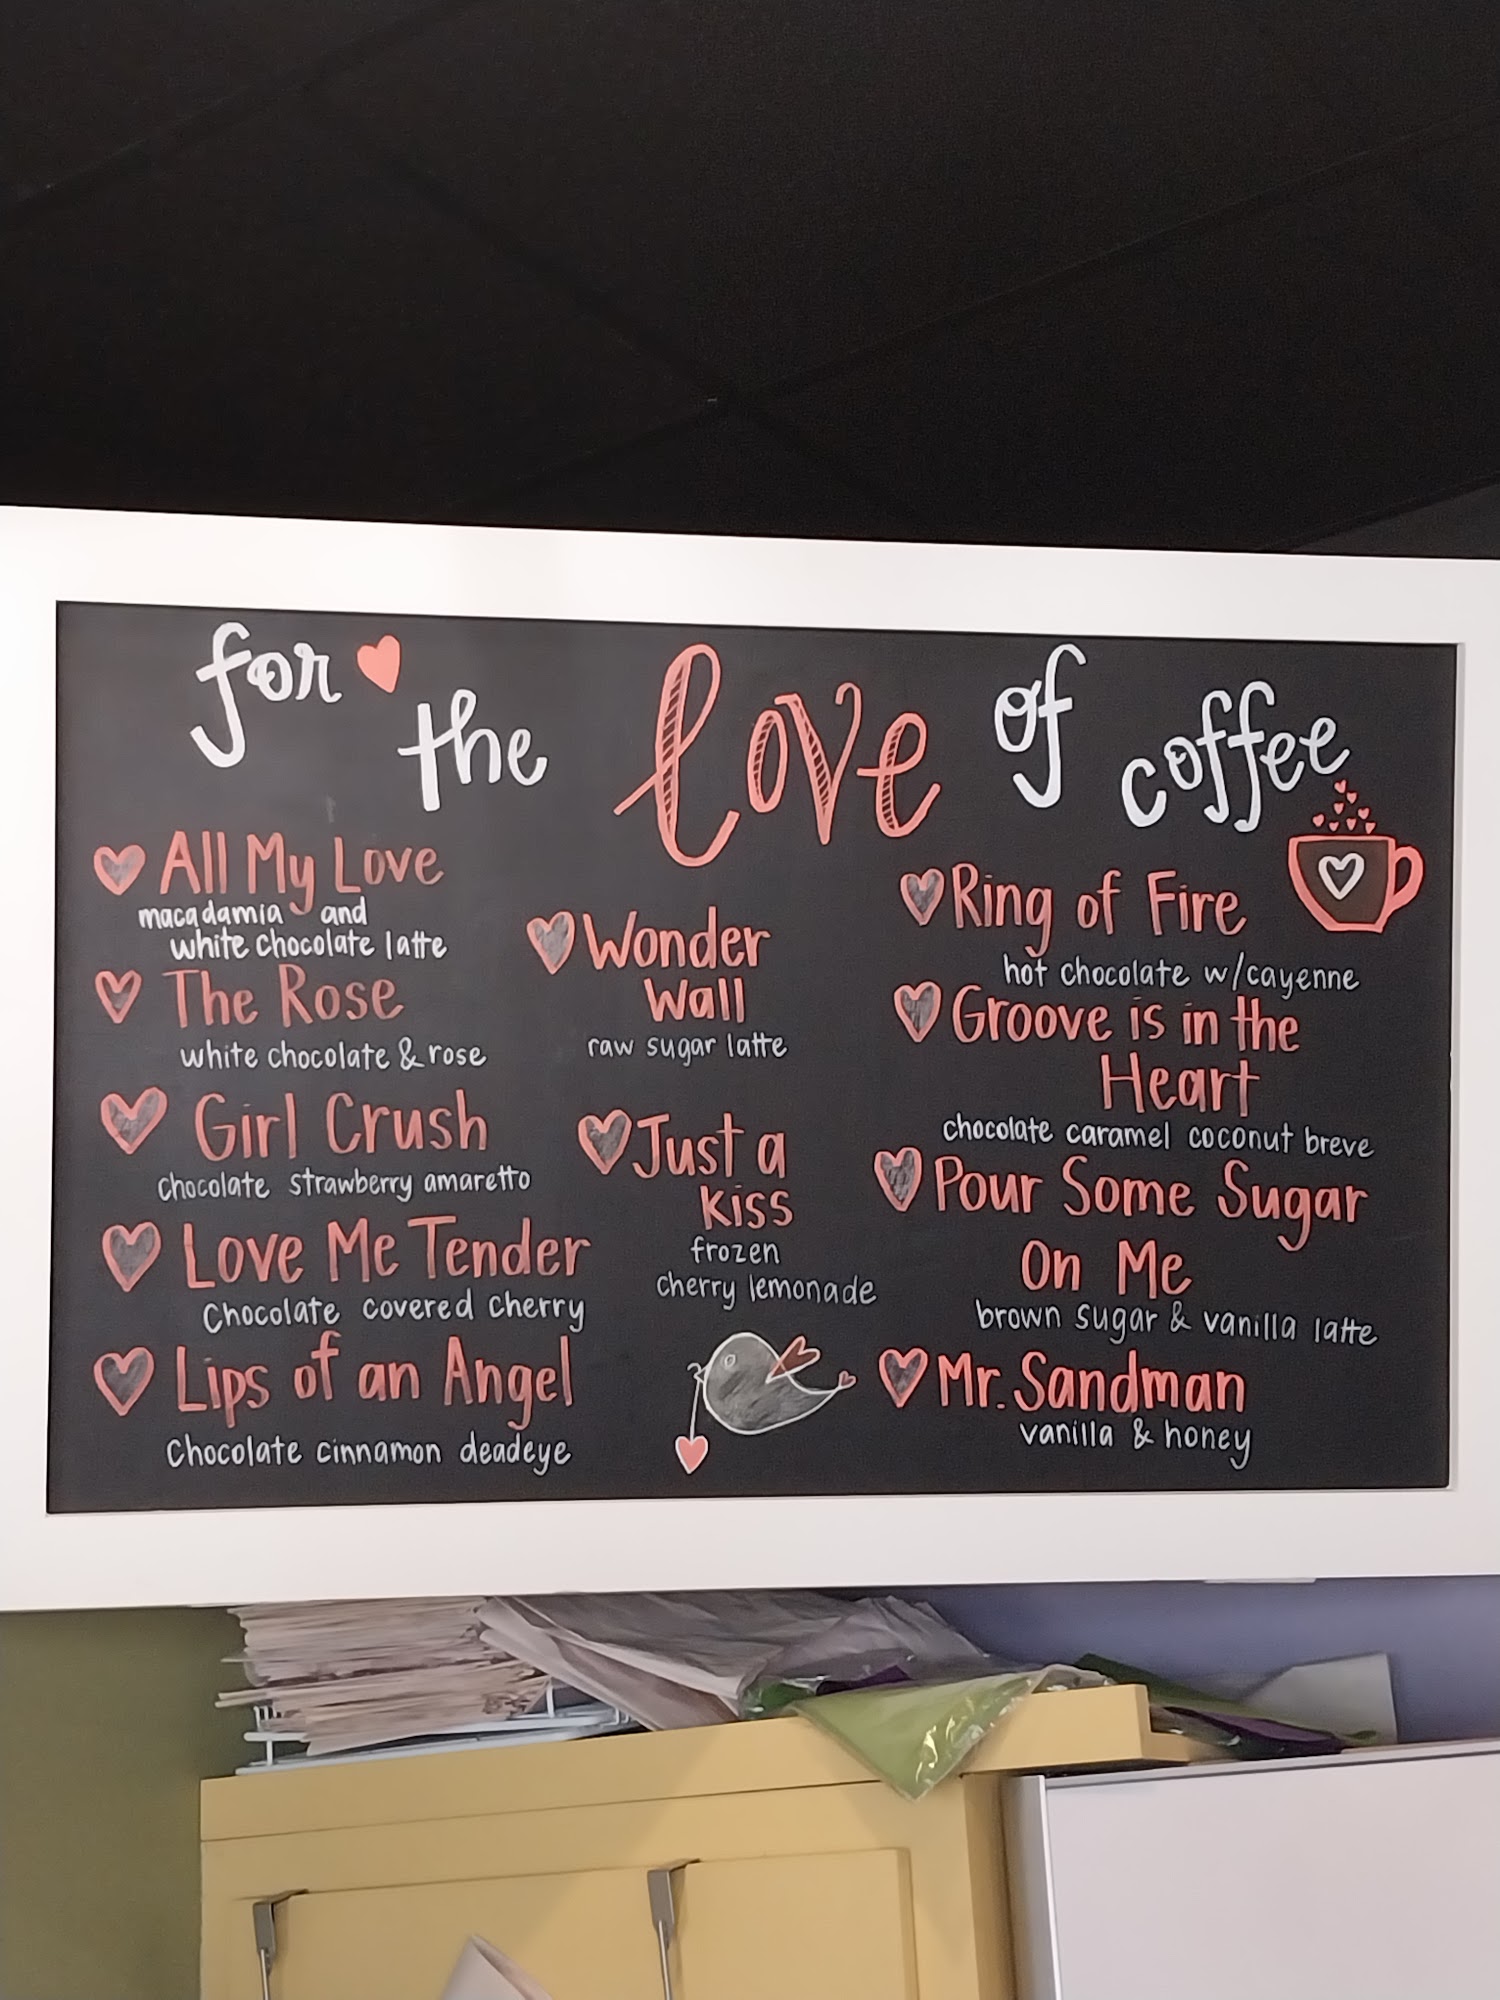 for the love of coffee
All My Love
macadamia and
white chocolate latte
The Rose
white chocolate & rose
Girl Crush
chocolate strawberry amaretto
Love Me Tender
Chocolate covered cherry
Lips of an Angel
Chocolate cinnamon deadeye
Wonder
Wall
raw sugar latte
Just a
Kiss
frozen
cherry lemonade
Ring of Fire
hot chocolate w/cayenne
Groove is in the
Heart
chocolate caramel coconut breve
Pour Some Sugar
On Me
brown sugar & vanilla latte
Mr. Sandman
vanilla & honey